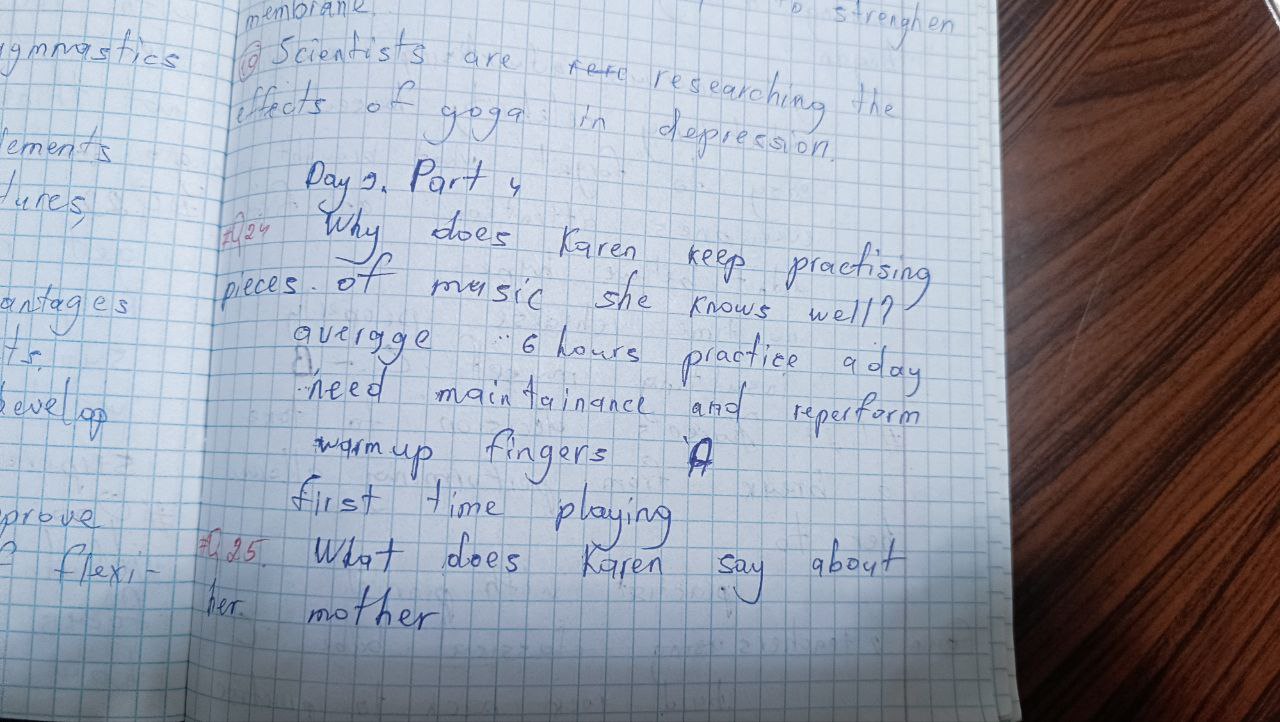 gymnastics
ements
tures,
antages
ts.
develop
prove
flexi-
membrane.
to strenghen
9 Scientists are researching the
effects of yoga in depression.
Day 9. Part 4
Q24 Why does Karen keep practising
pieces of music she knows well?
average 6 hours practice a day
need maintainance and reperform
warm up fingers
first time playing
Q25. What does Karen say about
her mother